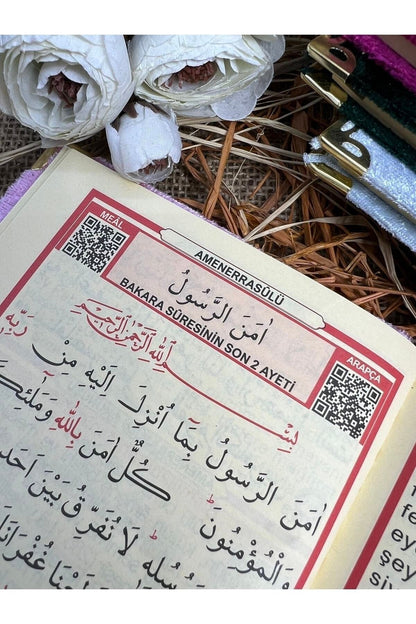 AMENERRASÛLÜ
MEAL
اٰمَنَ الرَّسُولُ
BAKARA SÛRESİNİN SON 2 AYETİ
ARAPÇA
بِسْمِ اللّٰهِ الرَّحْمٰنِ الرَّحِيمِ
اٰمَنَ الرَّسُولُ بِمَٓا اُنْزِلَ اِلَيْهِ مِنْ رَبِّه۪
وَالْمُؤْمِنُونَۜ كُلٌّ اٰمَنَ بِاللّٰهِ وَمَلٰٓئِكَ
لَا نُفَرِّقُ بَيْنَ اَحَدٍ
غُفْرَانَ